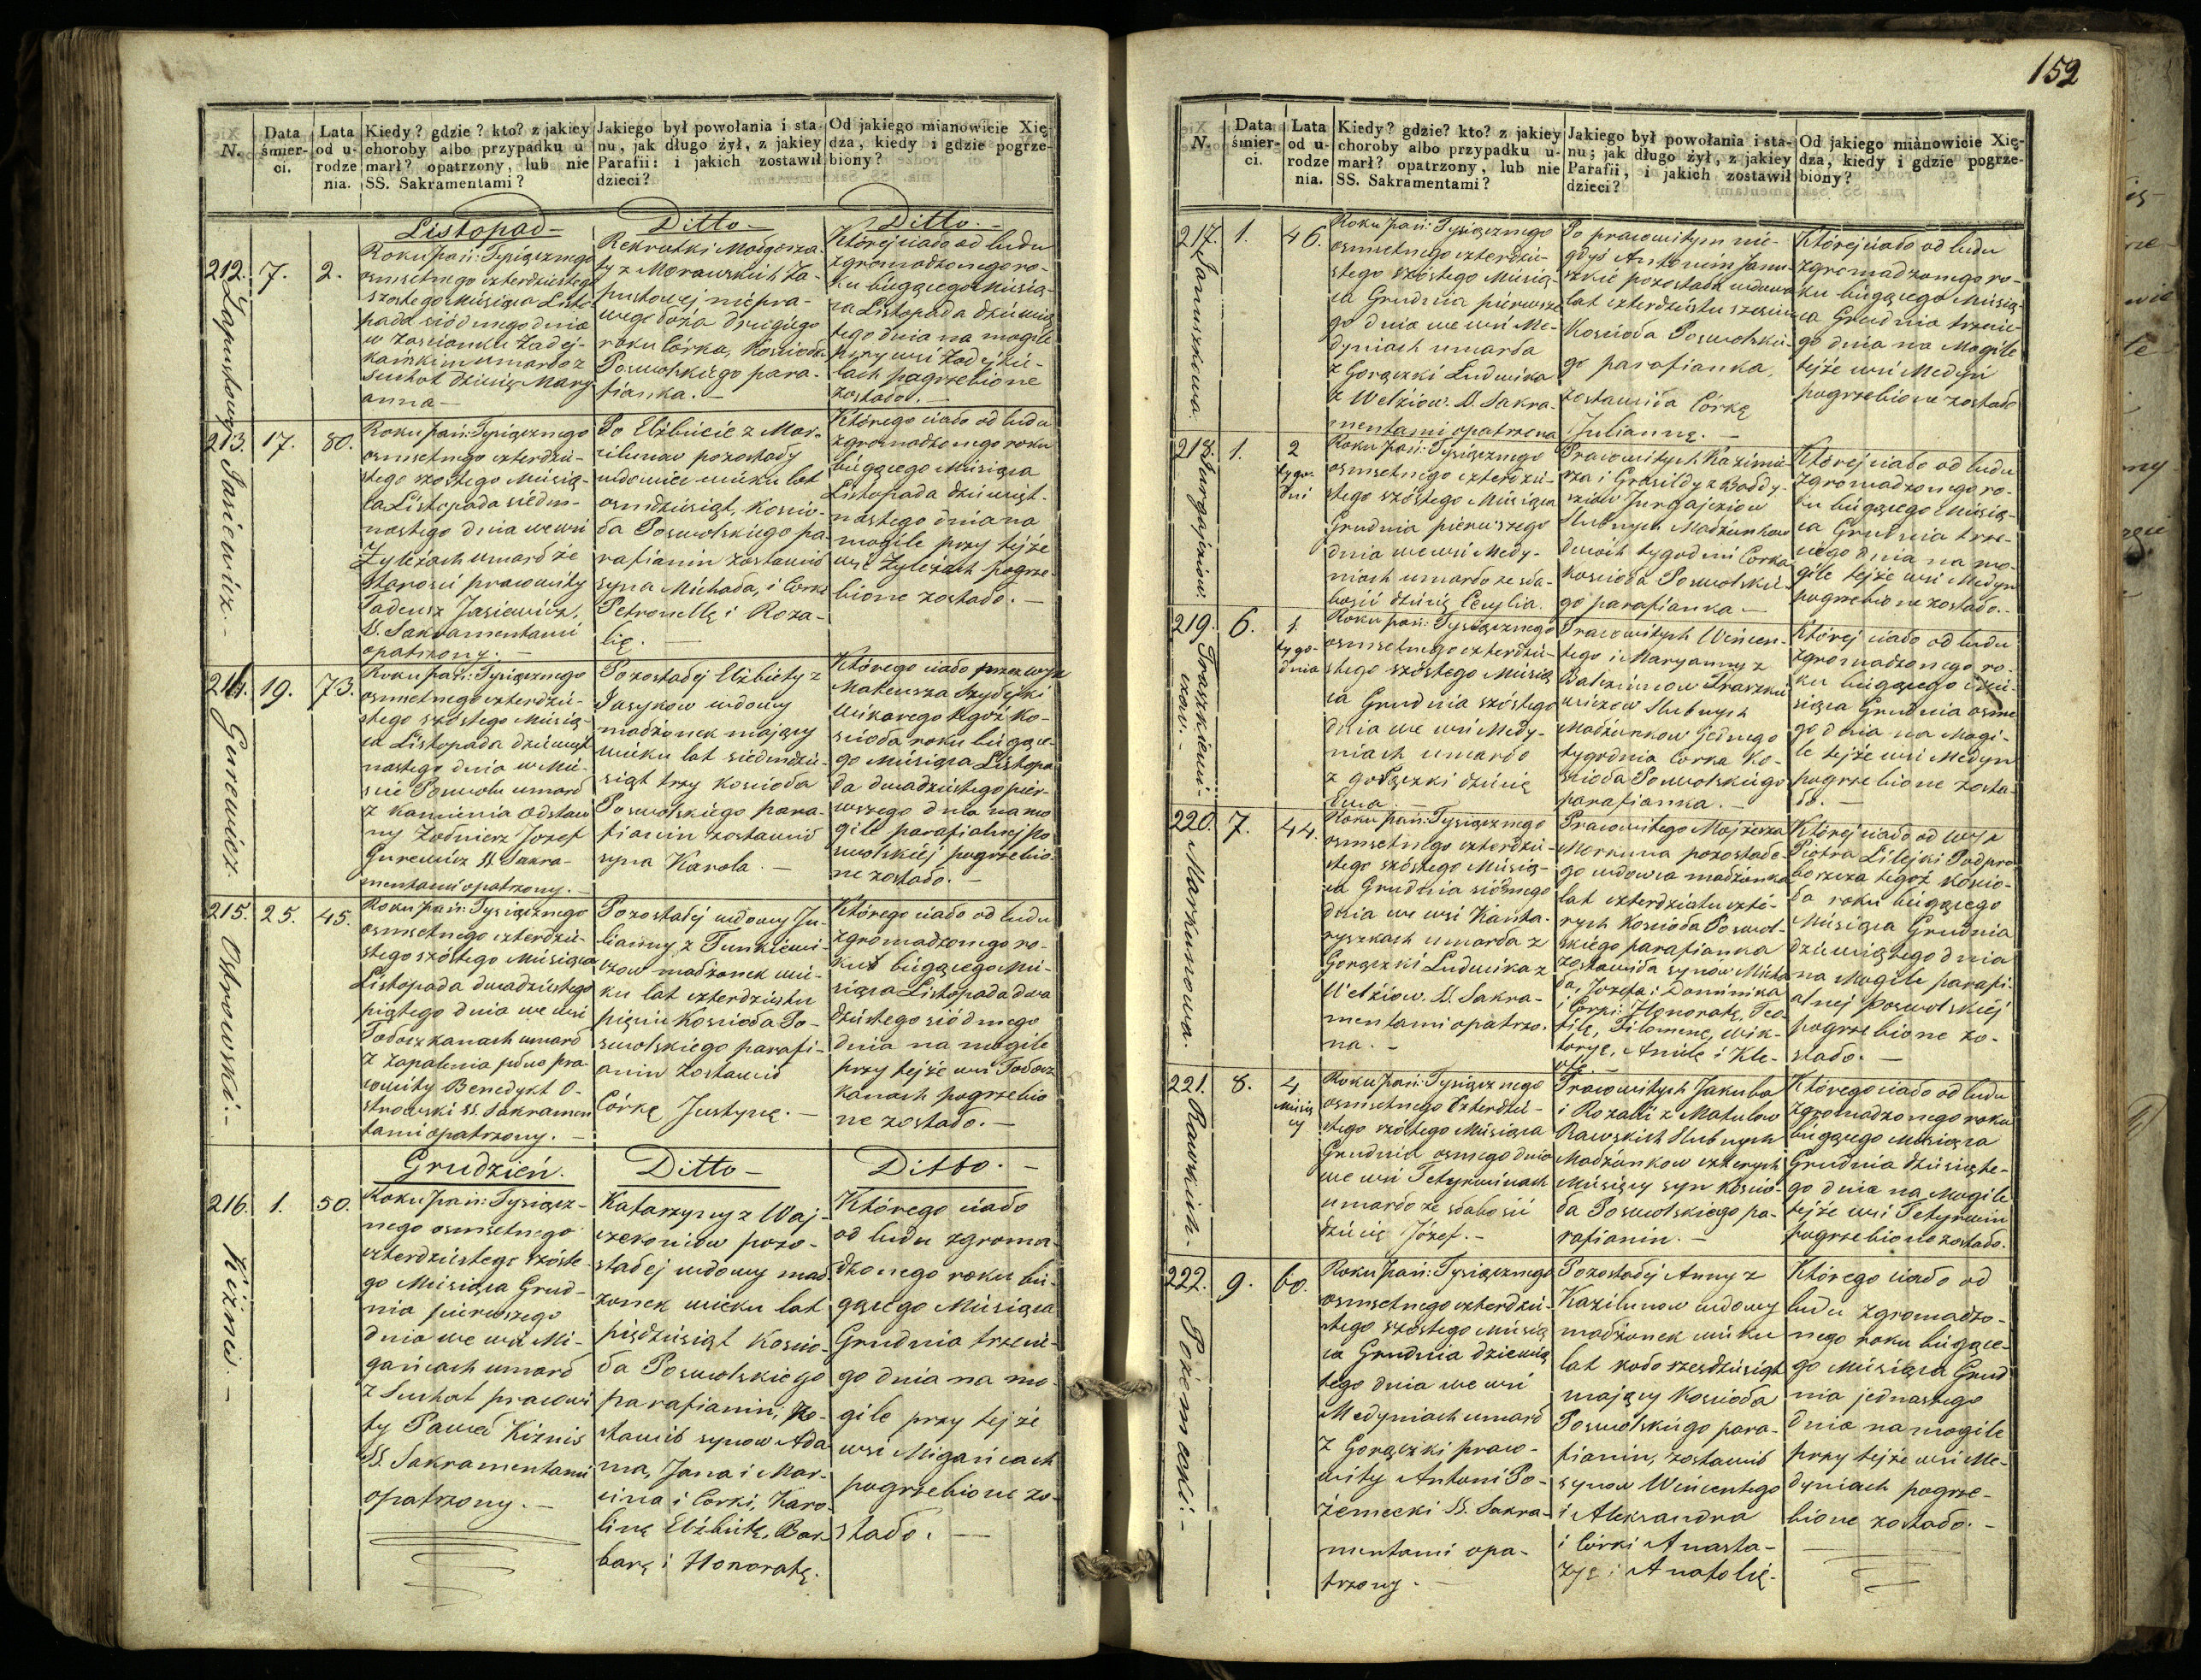 152
N.
Data śmier- ci.
Lata od u- rodze nia.
Kiedy? gdzie? kto? z jakiey
choroby albo przypadku u
marł? opatrzony, lub nie
SS. Sakramentami?
Jakiego był powołania i sta-
nu, jak długo żył, z jakiey
Parafii: i jakich zostawił
dzieci?
Od jakiego mianowicie Xię-
dza, kiedy i gdzie pogrze-
biony?
Listopad –
Ditto –
Ditto. –
212.
Łapustowny
7.
2.
Roku Pań: Tysiącznego
osmsetnego czterdziestego
szostego Miesiąca Listo-
pada siódmego dnia
w zascianku Zadej-
kańkim umarło z
Suchot dziecię Mary
anna –
Rekrutki Małgorza-
ty z Morawskich Ła-
pustowej niepra-
wego łoża drugiego
roku Córka, Kościoła
Poswolskiego para-
fianka. –
Której ciało od ludu
zgromadzonego ro-
ku biegącego Miesią-
ca Listopada dziewią
tego dnia na mogile
przy wsi Zadejki-
lach pogrzebione
zostało. –
213.
Jasiewicz. –
17.
80.
Roku Pań: Tysiącznego
osmsetnego czterdzie-
stego szostego Miesią-
ca Listopada siedm-
nastego dnia we wsi
Żyleżach umarł ze
Starości pracowity
Tadeusz Jasiewicz,
SS. Sakramentami
opatrzony. –
Po Elżbiecie z Mar-
cilunow pozostały
wdowiec wieku lat
osmdziesiąt, Koscio-
ła Poswolskiego pa-
rafianin zostawił
syna Michała, i Corki
Petronellę i Roza-
lię. –
Którego ciało od ludu
zgromadzonego roku
biegącego Miesiąca
Listopada dziewięt-
nastego dnia na
mogile przy tejże
wsi Żyleżach pogrze-
bione zostało. –
214.
Gurewicz.
19.
73.
Roku Pań: Tysiącznego
osmsetnego czterdzie-
stego szóstego Miesią-
ca Listopada dziewięt
nastego dnia w Mie-
ście Poswolu umarł
z Kamienia Odstaw
ny Żołnierz Jozef
Gurewicz SS. Sakra-
mentami opatrzony. –
Pozostałej Elżbiety z
Jasykow wdowy
małżonek mający
wieku lat siedmdzie-
siąt trzy Kosciola
Poswolskiego para-
fianin zostawił
syna Karola. –
Którego ciało przez WJX
Mateusza Szydejki
Wikarego tegoż Ko-
scioła roku biegące-
go Miesiąca Listopa
da dwadziestego pier-
wszego dnia na mo
gile parafialnej Po
swolskiej pogrzebio-
ne zostało. –
215.
Ostrowski. –
25.
45.
Roku Pań: Tysiącznego
osmsetnego czterdzie-
stego szóstego Miesiąca
Listopada dwadziestego
piątego dnia we wsi
Tołoczkanach umarł
z zapalenia płuc pra
cowity Benedykt O-
strowski SS. Sakramen
tami opatrzony. –
Pozostałej wdowy Ju-
lianny z Funkiewi
czow małżonek wie-
ku lat czterdziestu
pięciu Kościoła Po-
swolskiego parafi-
anin zostawił
Córkę Justynę. –
Którego ciało od ludu
zgromadzonego ro-
ku biegącego Mie-
siąca Listopada dwa
dziestego siódmego
dnia na mogile
przy tejże wsi Tołocz
kanach pogrzebio
ne zostało. –
Grudzień.
Ditto –
Ditto. –
216.
Kiżnis. –
1.
50.
Roku Pań: Tysiącz-
nego osmsetnego
czterdziestego szóste-
go Miesiąca Grud-
nia pierwszego
dnia we wsi Mi-
gańcach umarł
z Suchot pracowi
ty Paweł Kiżnis
SS. Sakramentami
opatrzony. –
Katarzyny z Waj-
czeroniow pozo-
stałej wdowy mał
żonek wieku lat
pięćdziesiąt Koscio-
ła Poswolskiego
parafianin, zo-
stawił synow Ada
ma, Jana i Mar-
cina i Corki, Karo-
linę Elżbietę, Bar-
barę i Honoratę.
Którego ciało
od ludu zgroma-
dzonego roku bie-
gącego Miesiąca
Grudnia trzecie-
go dnia na mo-
gile przy tejże
wsi Migańcach
pogrzebione zo-
stało. –
N.
Data śmier- ci.
Lata od u- rodze nia.
Kiedy? gdzie? kto? z jakiey
choroby albo przypadku u-
marł? opatrzony, lub nie
SS. Sakramentami?
Jakiego był powołania i sta-
nu; jak długo żył, z jakiey
Parafii, i jakich zostawił
dzieci?
Od jakiego mianowicie Xię-
dza, kiedy i gdzie pogrze-
biony?
217.
Januszkowa.
1.
46.
Roku Pań: Tysiącznego
osmsetnego czterdzie-
stego szóstego Miesią-
ca Grudnia pierwsze-
go dnia we wsi Me-
dyniach umarła
z Gorączki Ludwika
z Welżiow. SS. Sakra-
mentami opatrzona
Po pracowitym nie-
gdyś Antonim Janu-
szkie pozostała wdowa
lat czterdziestu szesciu
Kościoła Poswolskie-
go parafianka,
zostawiła Córkę
Juliannę. –
Której ciało od ludu
zgromadzonego ro-
ku biegącego Miesią-
ca Grudnia trzecie-
go dnia na Mogile
tejże wsi Medyń
pogrzebione zostało
218.
Jurgajciow
1.
2
tygo-
dni
Roku Pań: Tysiącznego
osmsetnego czterdzie-
stego szóstego Miesiąca
Grudnia pierwszego
dnia we wsi Medy-
niach umarło ze sła-
bości dziecię Cecylia.
Pracowitych Kazimie-
rza i Grasildy z Bołdy-
sziow Jurgajciow
Slubnych Małżonkow
dwóch tygodni Corka
kościoła Poswolskie-
go parafianka –
Której ciało od ludu
zgromadzonego ro-
ku biegącego Miesią-
ca Grudnia trze-
ciego dnia na mo-
gile tejże wsi Medyn
pogrzebione zostało. –
219.
Traszkiewi-
czow. –
6.
1.
tygo-
dnia
Roku Pań: Tysiącznego
osmsetnego czterdzie-
stego szóstego Miesią
ca Grudnia szóstego
dnia we wsi Medy-
niach umarło
z gorączki dziecię
Ewa. –
Pracowitych Wincen-
tego i Maryanny z
Balziunow Traszkie
wiczow Slubnych
Małżonkow jednego
tygodnia Corka Ko-
ścioła Poswolskiego
parafianka. –
Której ciało od ludu
zgromadzonego ro-
ku biegącego Mie-
siąca Grudnia osme
go dnia na Mogi-
le tejże wsi Medyn
pogrzebione zosta-
ło. –
220.
Markunowa.
7.
44.
Roku Pań: Tysiącznego
osmsetnego czterdzie-
stego szóstego Miesią-
ca Grudnia siódmego
dnia we wsi Kanta-
ryszkach umarła z
Gorączki Ludwika z
Welżiow. SS. Sakra-
mentami opatrzo-
na. –
Pracowitego Mojżesza
Merkuna pozostałe-
go wdowca małżonka
lat czterdziestu czte-
rych Kościoła Poswol-
skiego parafianka
zostawiła synow Micha
ła, Jozefa i Dominika
i Corki: Honoratę, Teo-
filę, Filomenę, Wik-
toryę, Anielę i Kle-
ofę –
Której ciało od WJX
Piotra Lilejki Podpro
borzcza tegoż Koscio-
ła roku biegącego
Miesiąca Grudnia
dziewiątego dnia
na Mogile parafi-
alnej Poswolskiej
pogrzebione zo-
stało. –
221.
Rawskich –
8.
4
Miesię
cy
Roku Pań: Tysiącznego
osmsetnego Czterdzie-
stego szóstego Miesiąca
Grudnia osmego dnia
we wsi Tetyrwinach
umarło ze słabości
dziecię Józef. –
Pracowitych Jakuba
i Rozalii z Matulow
Rawskich Slubnych
Małżonkow czterych
Miesięcy syn Koscio-
ła Poswolskiego pa-
rafianin. –
Którego ciało od ludu
zgromadzonego roku
biegącego Miesiąca
Grudnia dziesiąte-
go dnia na Mogile
tejże wsi Tetyrwin
pogrzebione zostało.
222.
Pożemecki. –
9.
60.
Roku Pań: Tysiącznego
osmsetnego czterdzie-
stego szóstego Miesią
ca Grudnia dziewią
tego dnia we wsi
Medyniach umarł
z Gorączki praco-
wity Antoni Po-
żemecki SS. Sakra-
mentami opa-
trzony. –
Pozostałej Anny z
Kazilunow wdowy
małżonek wieku
lat koło szesdziesiąt
mający Koscioła
Poswolskiego para-
fianin, zostawił
synow Wincentego
i Aleksandra
i Córki Anasta-
zyę i Anatolię.
Którego ciało od
ludu zgromadzo-
nego roku biegące-
go Miesiąca Grud
nia jednastego
dnia na mogile
przy tejże wsi Me-
dyniach pogrze-
bione zostało. –